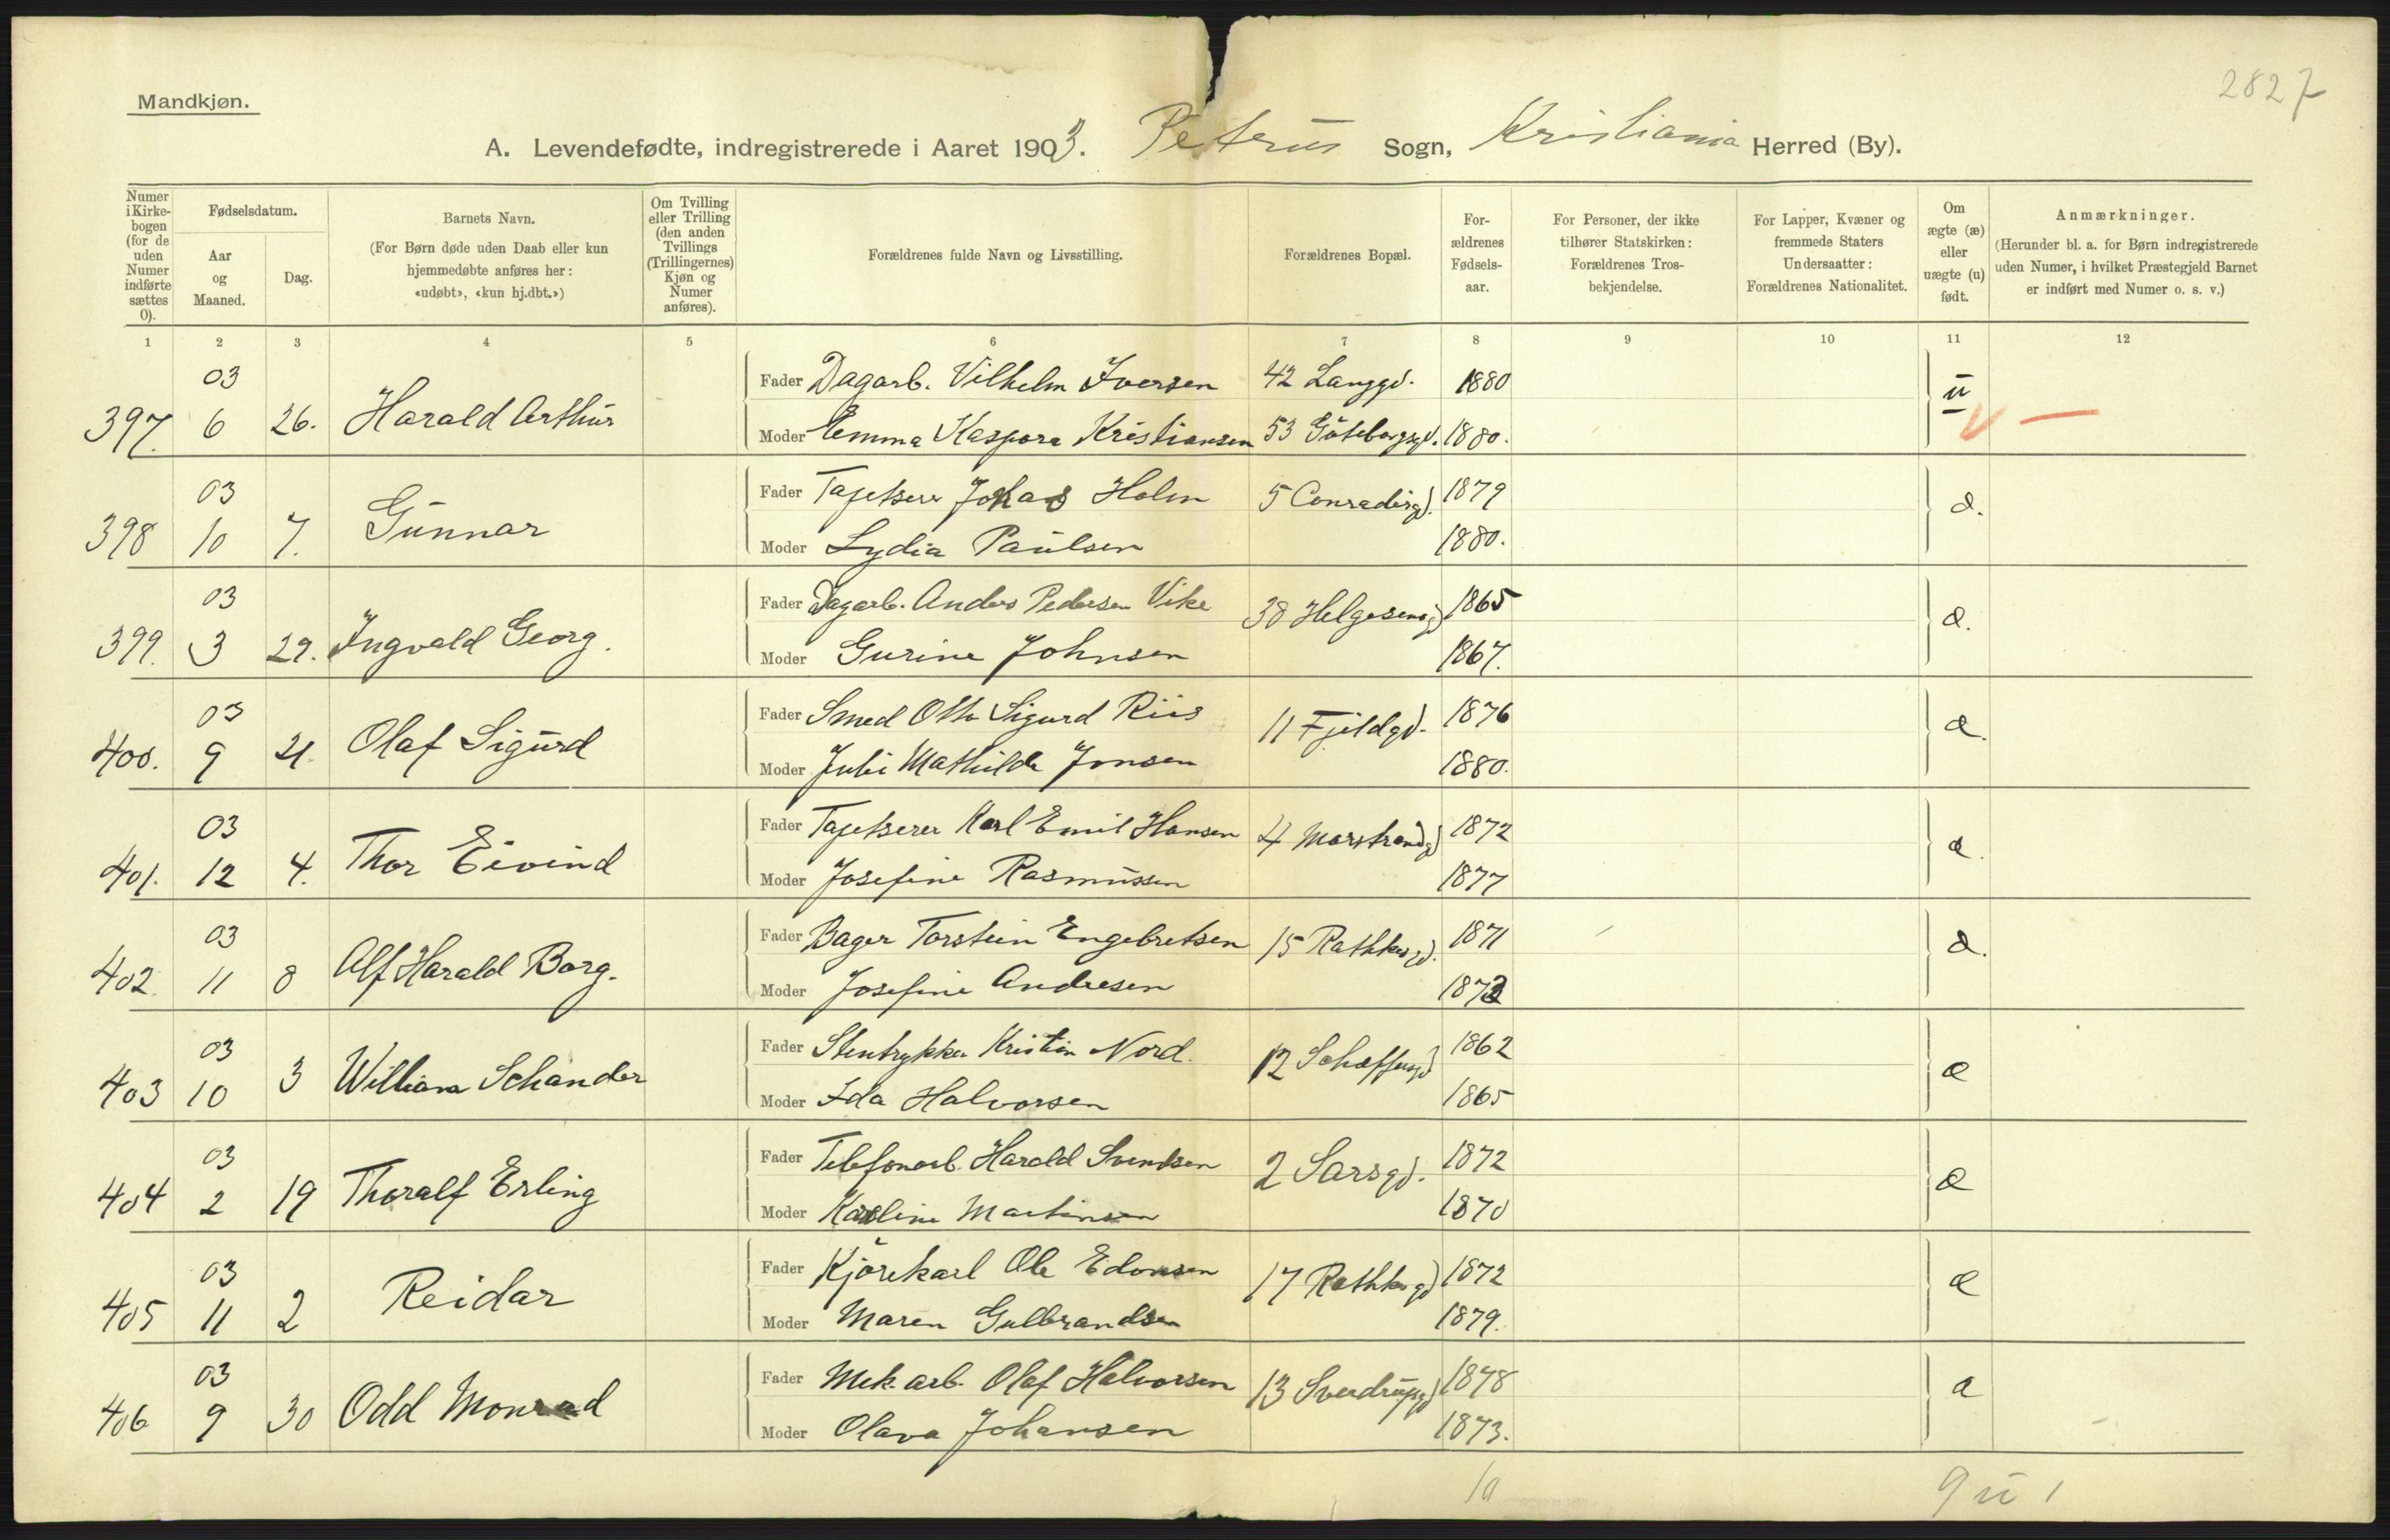 2827
Mandkjøn.
A. Levendefødte, indregistrerede i Aaret 1903. Petrus Sogn, Kristiania Herred (By).
Numer i Kirkebogen (for de uden Numer indførte sættes 0).
Fødselsdatum.
Aar og Maaned.
Dag.
Barnets Navn.
(For Børn døde uden Daab eller kun hjemmedøbte anføres her: «udøbt», «kun hj.dbt.»)
Om Tvilling eller Trilling (den anden Tvillings (Trillingernes) Kjøn og Numer anføres).
Forældrenes fulde Navn og Livsstilling.
Forældrenes Bopæl.
For-ældrenes Fødsels-aar.
For Personer, der ikke tilhører Statskirken: Forældrenes Tros-bekjendelse.
For Lapper, Kvæner og fremmede Staters Undersaatter: Forældrenes Nationalitet.
Om ægte (æ) eller uægte (u) født.
Anmærkninger.
(Herunder bl. a. for Børn indregistrerede uden Numer, i hvilket Præstegjeld Barnet er indført med Numer o. s. v.)
1 2 3 4 5 6 7 8 9 10 11 12
03 Fader Dagarb. Vilhelm Iversen 42 Langgd. 1880
397. 6 26. Harald Arthur u
Moder Emma Kaspara Kristiansen 53 Göteborggd. 1880.
03 Fader Tapetserer Johas Holm 5 Conradisgd. 1879
398 10 7. Gunnar æ.
Moder Lydia Paulsen 1880.
03 Fader Dagarb. Anders Pedersen Vike 38 Helgesensgd 1865
399. 3 29. Ingvald Georg. æ.
Moder Gurine Johnsen 1867.
03 Fader Smed Otto Sigurd Riis 11 Fjeldgd. 1876
400. 9 21. Olaf Sigurd æ.
Moder Julie Mathilde Jonsen 1880.
03 Fader Tapetserer Karl Emil Hansen 4 Marstrandgd 1872
401. 12 4. Thor Eivind æ.
Moder Josefine Rasmussen 1877
03 Fader Bager Torstein Engebretsen 15 Rathkesgd. 1871
402. 11 8 Alf Harald Borg. æ.
Moder Josefine Andresen 1873
03 Fader Stentrykker Kristian Nord. 12 Schæffersgd 1862
403 10 3 William Schander æ
Moder Ida Halvorsen 1865
03 Fader Telefonarb. Harald Svendsen 2 Sarsgd. 1872
404 2 19 Thoralf Erling æ
Moder Karoline Martinsen 1870
03 Fader Kjörekarl Ole Edvinsen 17 Rathkesgd 1872
405 11 2 Reidar æ
Moder Maren Gulbrandsen 1879.
03 Fader Mek. arb. Olaf Halvorsen 13 Sverdrupsgd 1878
406 9 30 Odd Monrad æ
Moder Olava Johansen 1873.
10 9 u 1